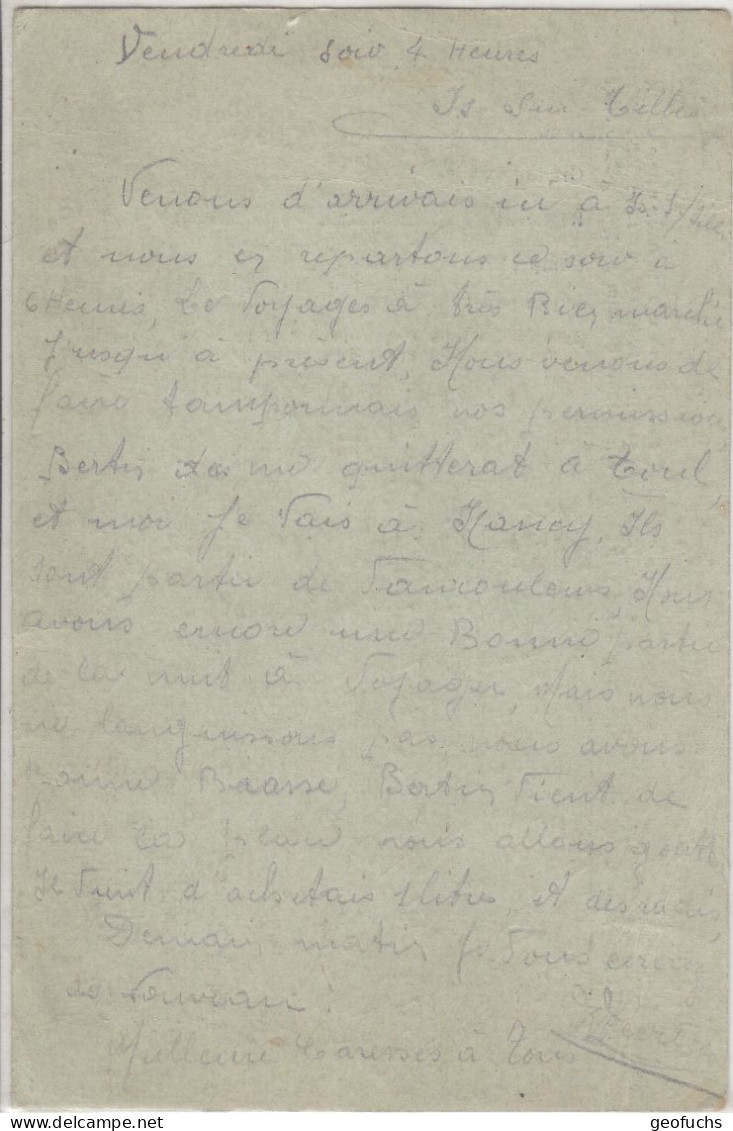 Vendredi soir 4 Heures
Is Sur Tille
Venons d'arrivais ici à Is. S/Tille
et nous en repartons ce soir à
6 Heures, Le Voyages à très Bien marché
jusqu'à présent, Nous venons de
faire tamponnais nos permission
Bertin me quitterat à Toul,
et moi Je Vais à Nancy, Ils
sont partie de Vaucouleurs, Nous
avons encore une Bonne partie
de la nuit à Voyager, Mais nous
ne languissons pas, nous avons
Bertin Vient de
faire la nous allons
Il Vient d'achetais 1 litres, et des
Demain matin je Vous
de nouveau!
Albert
Meilleure Caresses à Tous
geofuchs